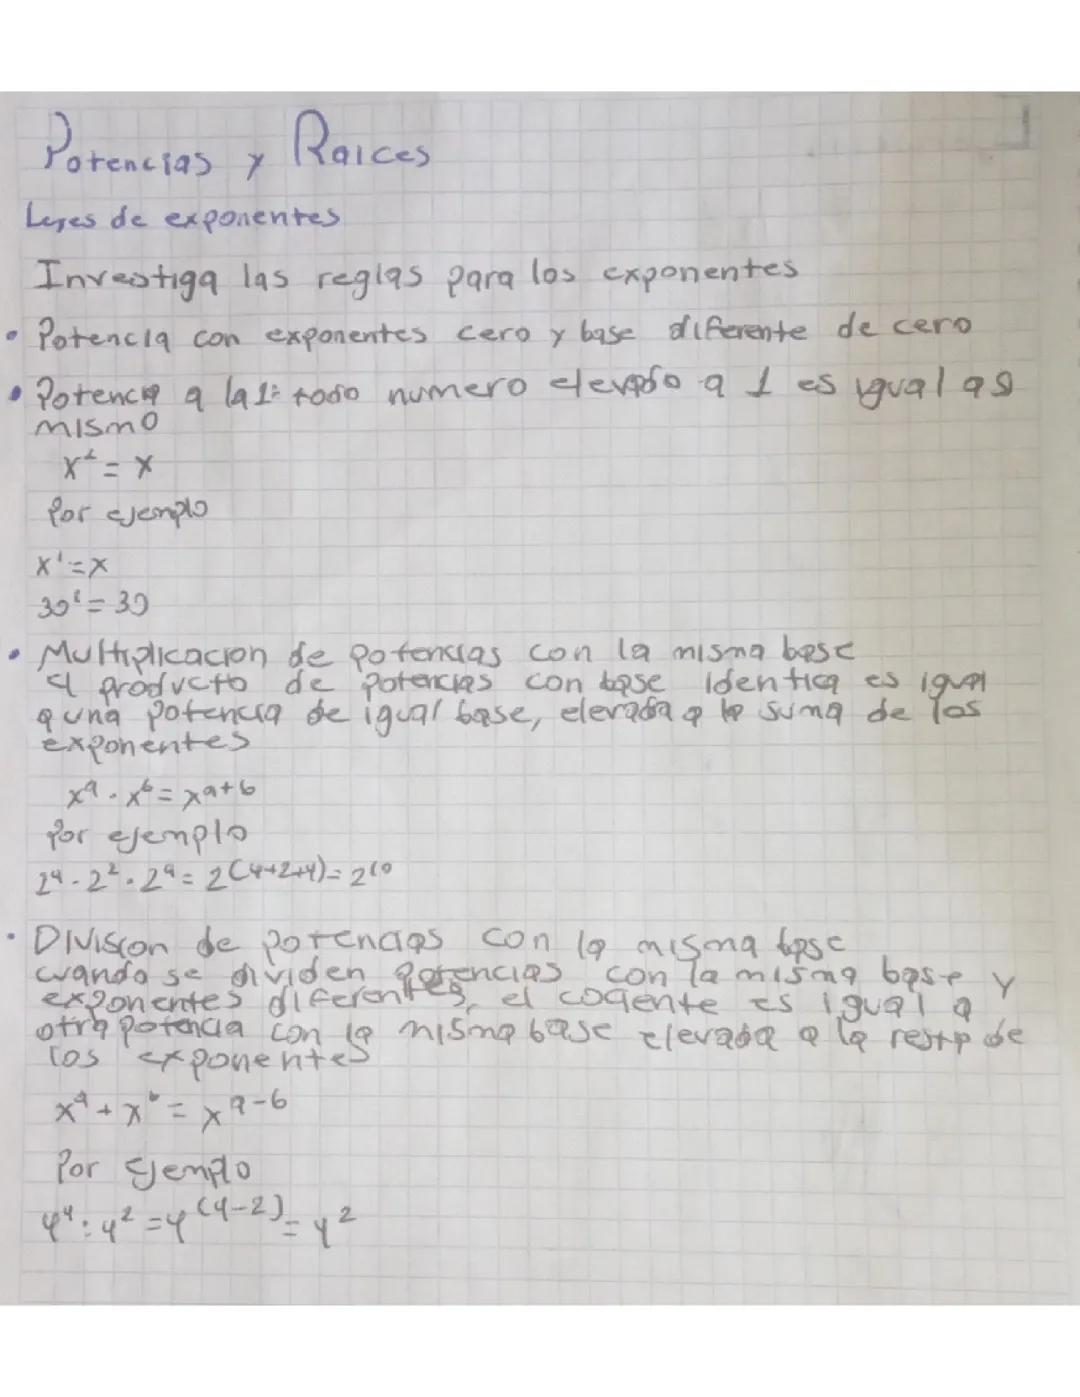 Potencias y Raices
Leyes de exponentes
Investiga las reglas para los exponentes
• Potencia con exponentes cero y base diferente de cero
• Potencia a la 1: todo numero elevado a 1 es igual a si
mismo
x¹ = x
Por ejemplo
x¹ = x
30¹ = 30
• Multiplicacion de potencias con la misma base
el producto de potencias con base identica es igual
a una potencia de igual base, elevada a la suma de los
exponentes
xᵃ · xᵇ = xᵃ⁺ᵇ
Por ejemplo
2⁴ · 2² · 2⁴ = 2⁽⁴⁺²⁺⁴⁾ = 2¹⁰
• Division de potencias con la misma base
cuando se dividen potencias con la misma base y
exponentes diferentes, el cociente es igual a
otra potencia con la misma base elevada a la resta de
los exponentes
xᵃ + xᵇ = xᵃ⁻ᵇ
Por Ejemplo
4⁴ : 4² = 4⁽⁴⁻²⁾ = 4²